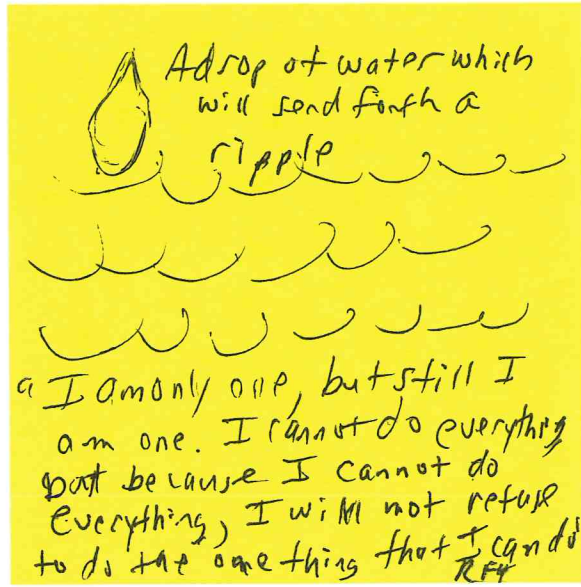 A drop of water which
will send forth a
ripple
"I am only one, but still I
am one. I cannot do everything
but because I cannot do
everything, I will not refuse
to do the one thing that I can do